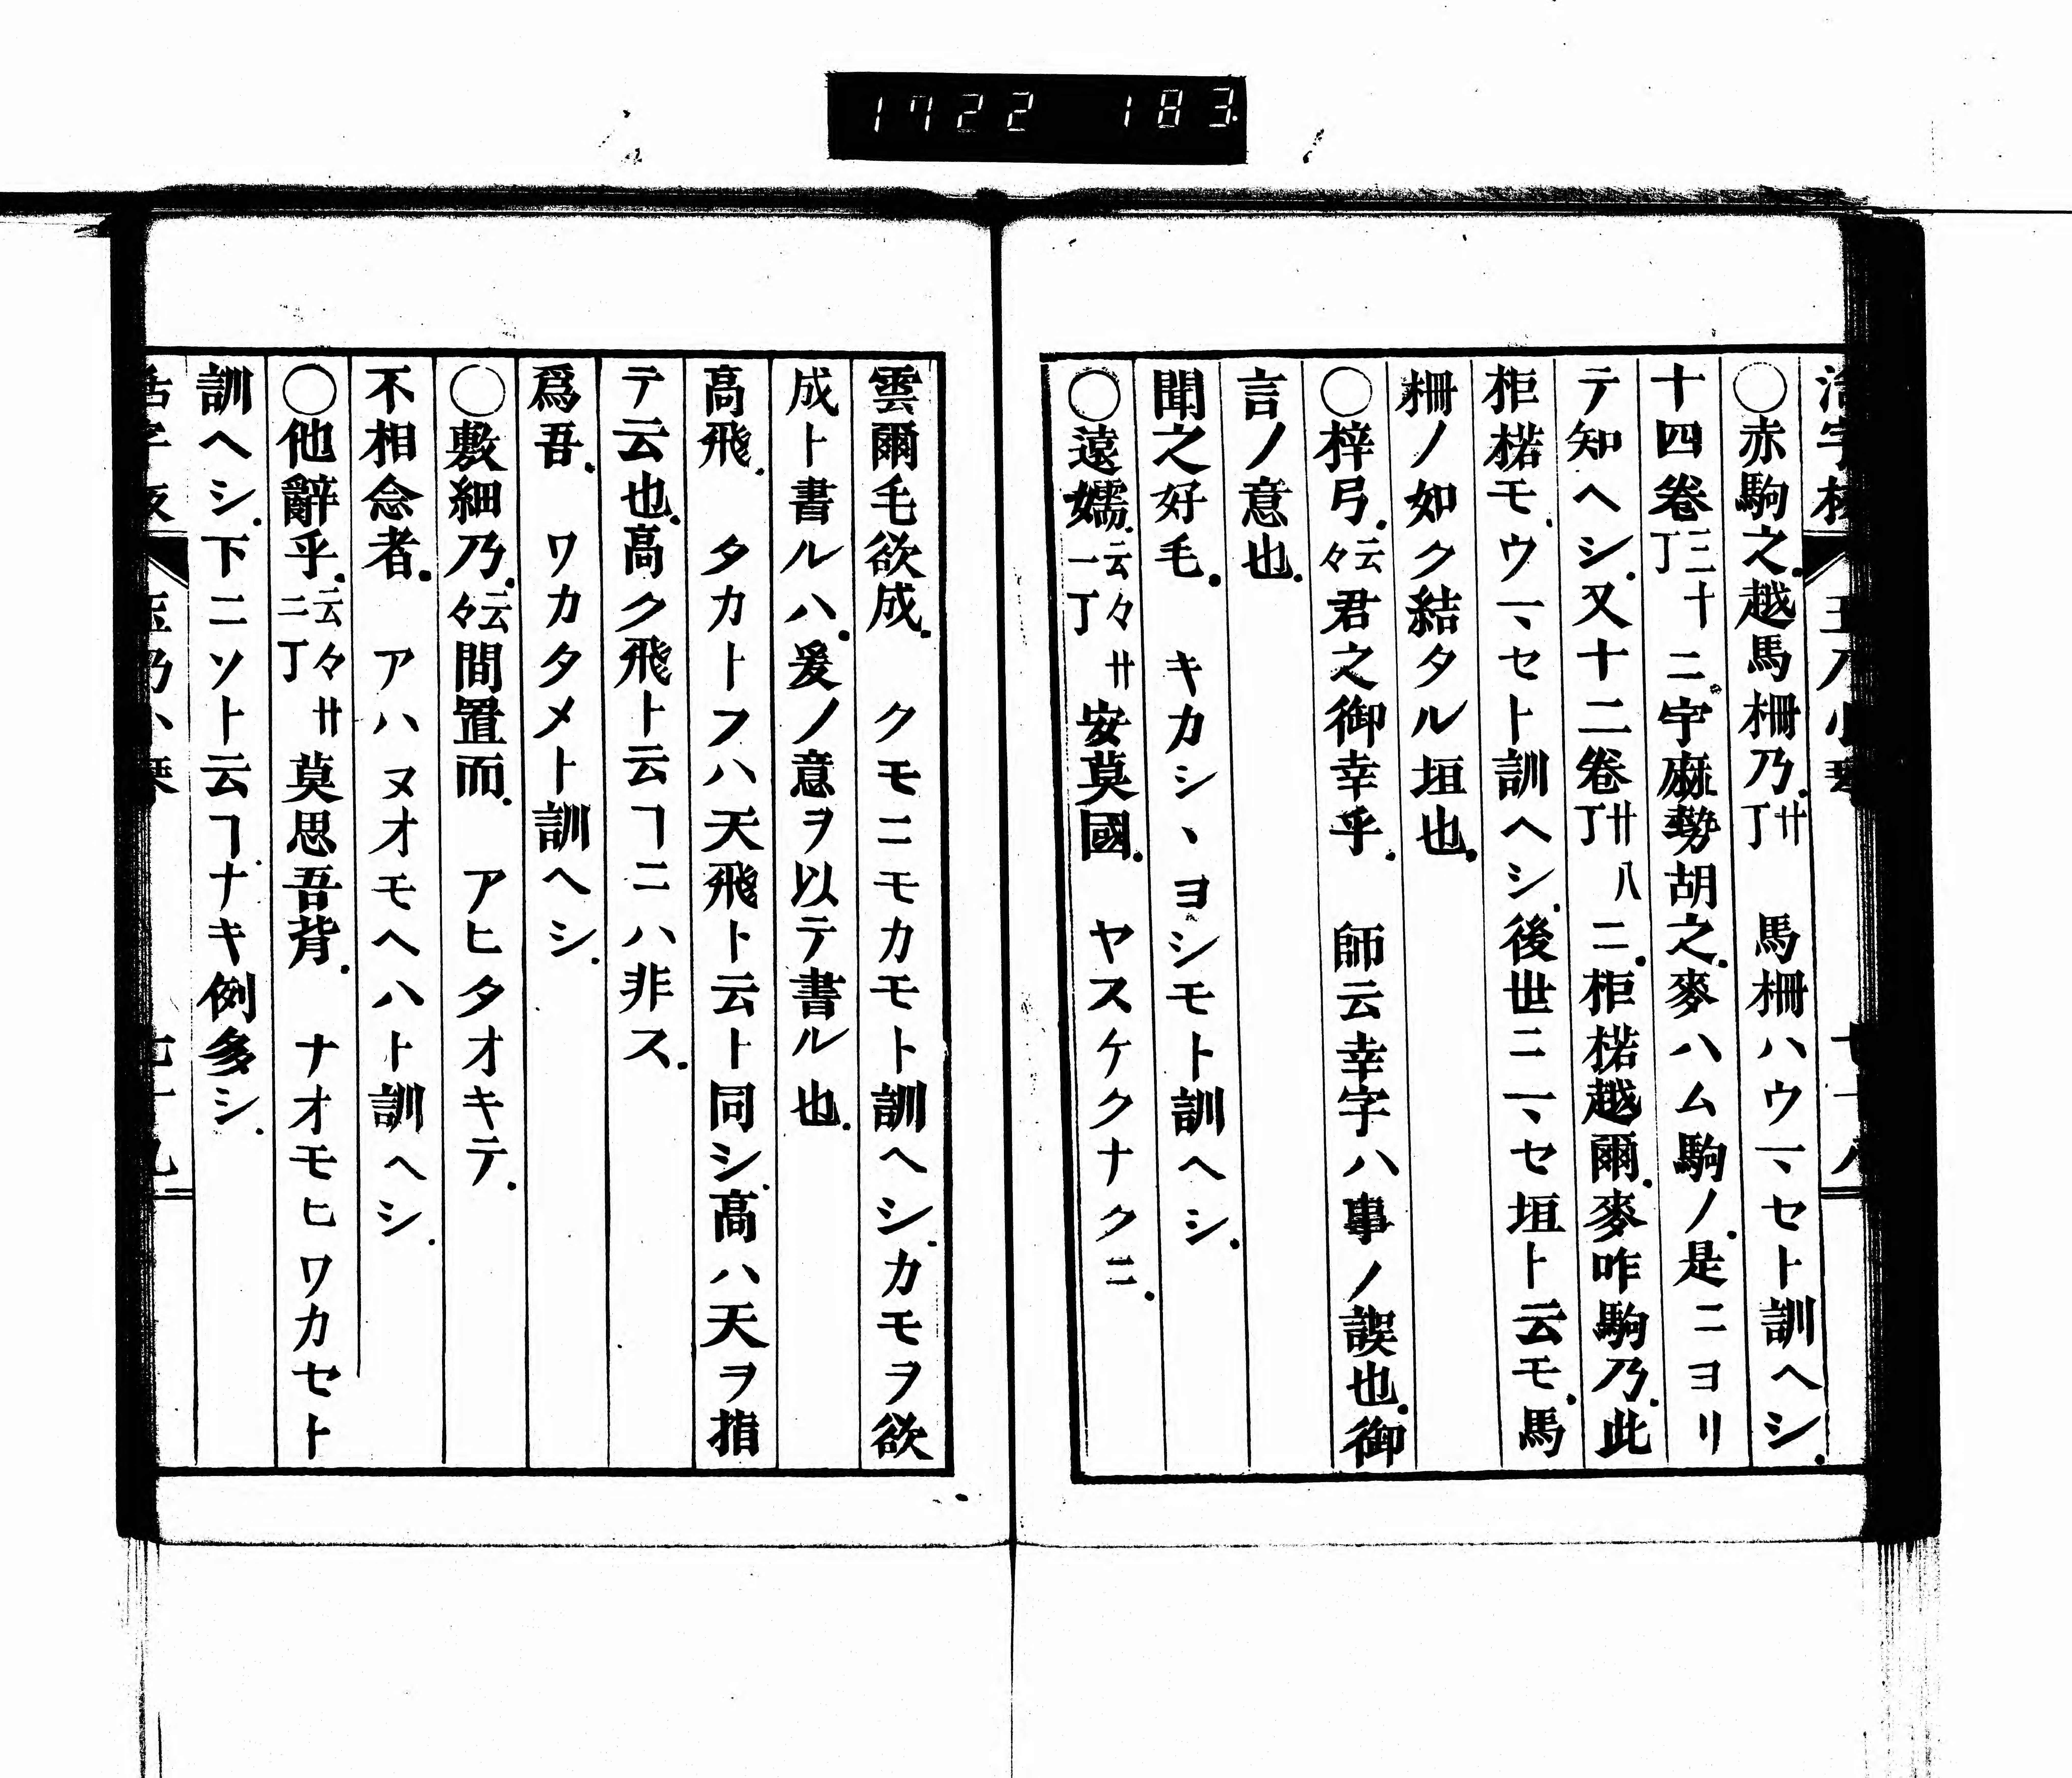 1722 183
○赤駒之越馬柵乃廿丁 馬柵ハウマセト訓ヘシ
十四卷三十丁ニ宇麻勢胡之麥ハム駒ノ是ニヨリ
テ知ヘシ又十二卷廿八丁ニ柜楉越爾麥咋駒乃此
柜楉モウマセト訓ヘシ後世ニマセ垣ト云モ馬
柵ノ如ク結タル垣也
○梓弓云々君之御幸乎 師云幸字ハ事ノ誤也御
言ノ意也
聞之好毛 キカシヽヨシモト訓ヘシ
○遠嬬云々廿一丁安莫國 ヤスケクナクニ
雲爾毛欲成 クモニモカモト訓ヘシカモヲ欲
成ト書ルハ爰ノ意ヲ以テ書ル也
高飛 タカトフハ天飛ト云ト同シ高ハ天ヲ指
テ云也高ク飛ト云ヿニハ非ス
爲吾 ワカタメト訓ヘシ
○敷細乃云々間置而 アヒタオキテ
不相念者 アハヌオモヘハト訓ヘシ
○他辭乎云々廿二丁莫思吾背 ナオモヒワカセト
訓ヘシ下ニソト云ヿナキ例多シ